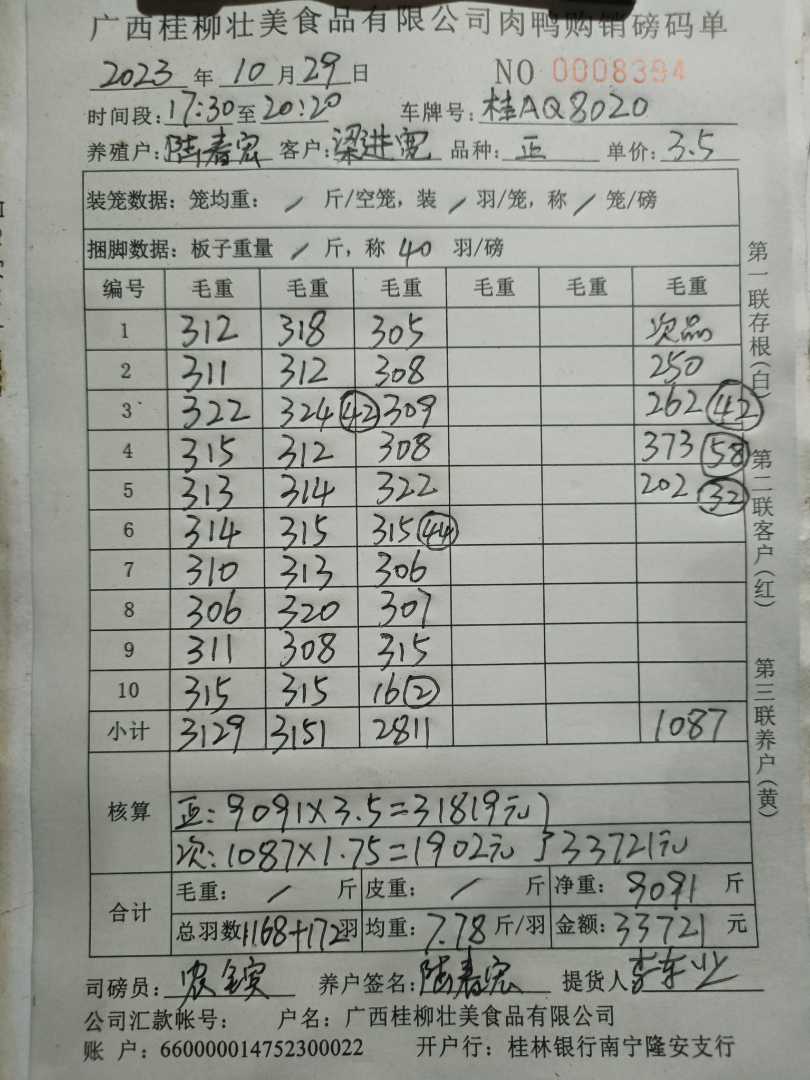 广西桂柳壮美食品有限公司肉鸭购销磅码单
2023年10月29日 NO 0008394
时间段:17:30至20:20 车牌号:桂AQ8020
养殖户:陆春宏 客户:梁进宽 品种:正 单价:3.5
装笼数据:笼均重: / 斤/空笼,装 / 羽/笼,称 / 笼/磅
捆脚数据:板子重量 / 斤,称 40 羽/磅
编号 毛重 毛重 毛重 毛重 毛重 毛重
1 312 318 305 次品
2 311 312 308 250
3 322 324 42 309 262 42
4 315 312 308 373 58
5 313 314 322 202 32
6 314 315 315 44
7 310 313 306
8 306 320 307
9 311 308 315
10 315 315 16 2
小计 3129 3151 2811 1087
核算
正:9091×3.5=31819元}
次:1087×1.75=1902元}33721元
合计
毛重: / 斤 皮重: / 斤 净重: 9091 斤
总羽数1168+172羽 均重:7.78斤/羽 金额:33721元
司磅员: 养户签名:陆春宏 提货人李东业
公司汇款帐号: 户名:广西桂柳壮美食品有限公司
账 户:660000014752300022 开户行:桂林银行南宁隆安支行
第一联存根(白)
第二联客户(红)
第三联养户(黄)